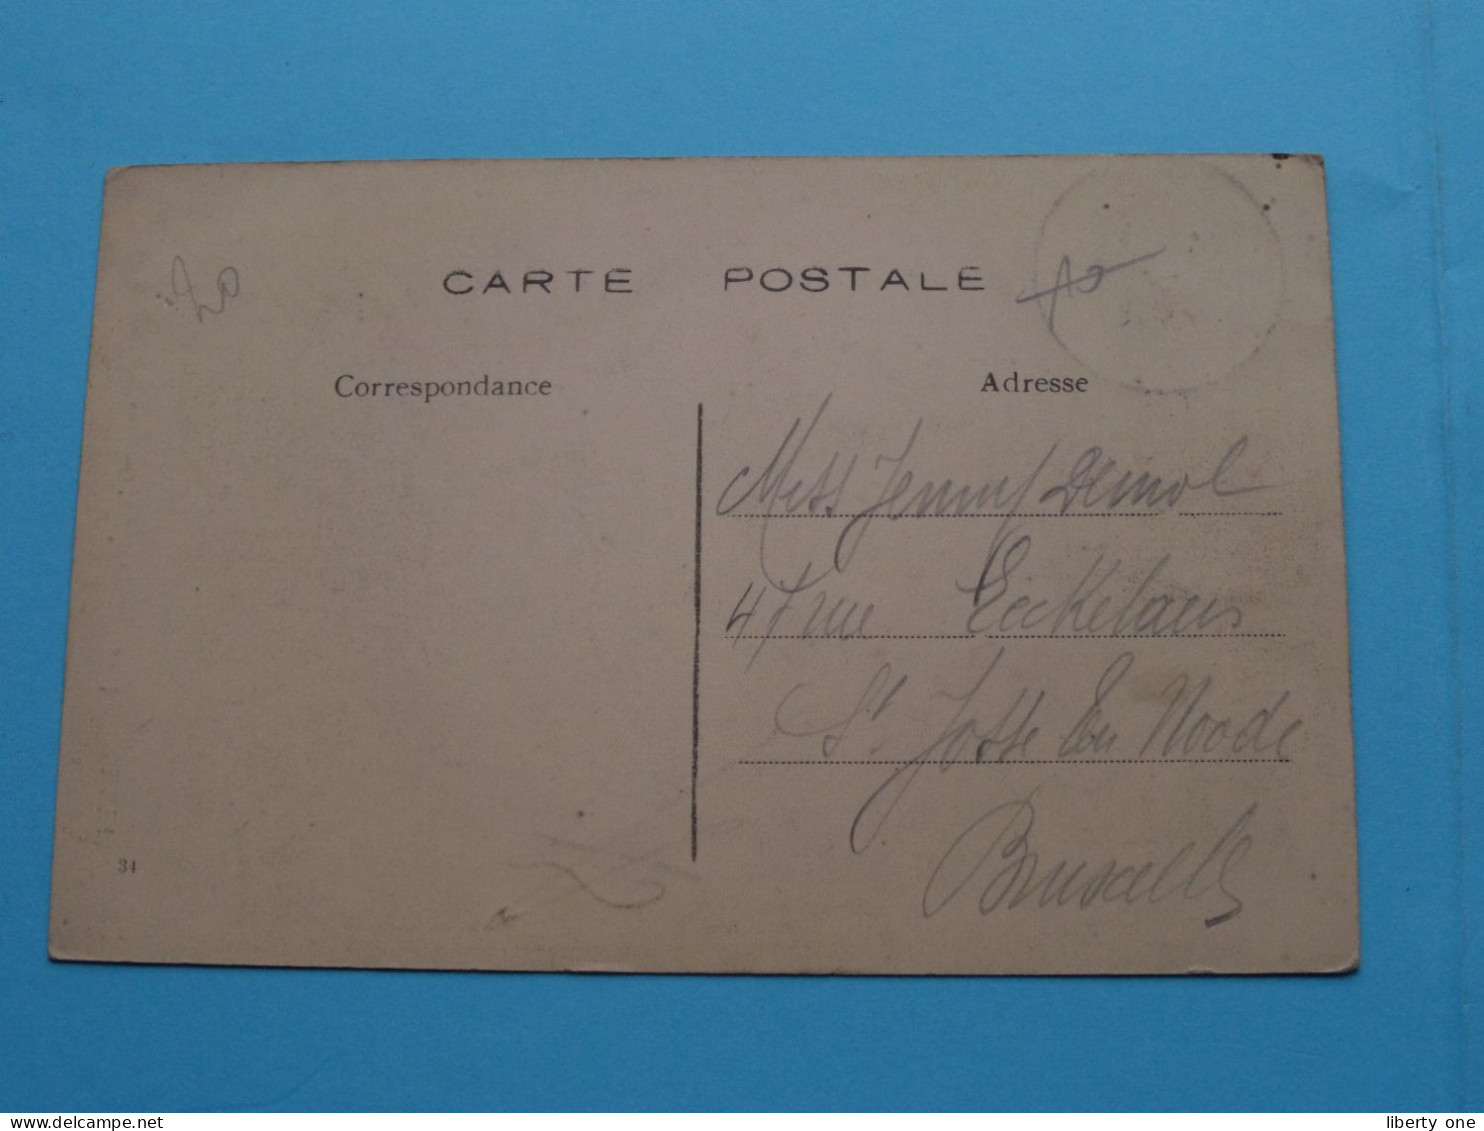 20
CARTE POSTALE
Correspondance
Adresse
Miss Jenny Demol
47 rue Eeckelaers
St. Josse ten Noode
Bruxelles
34
www.delcampe.net
liberty one